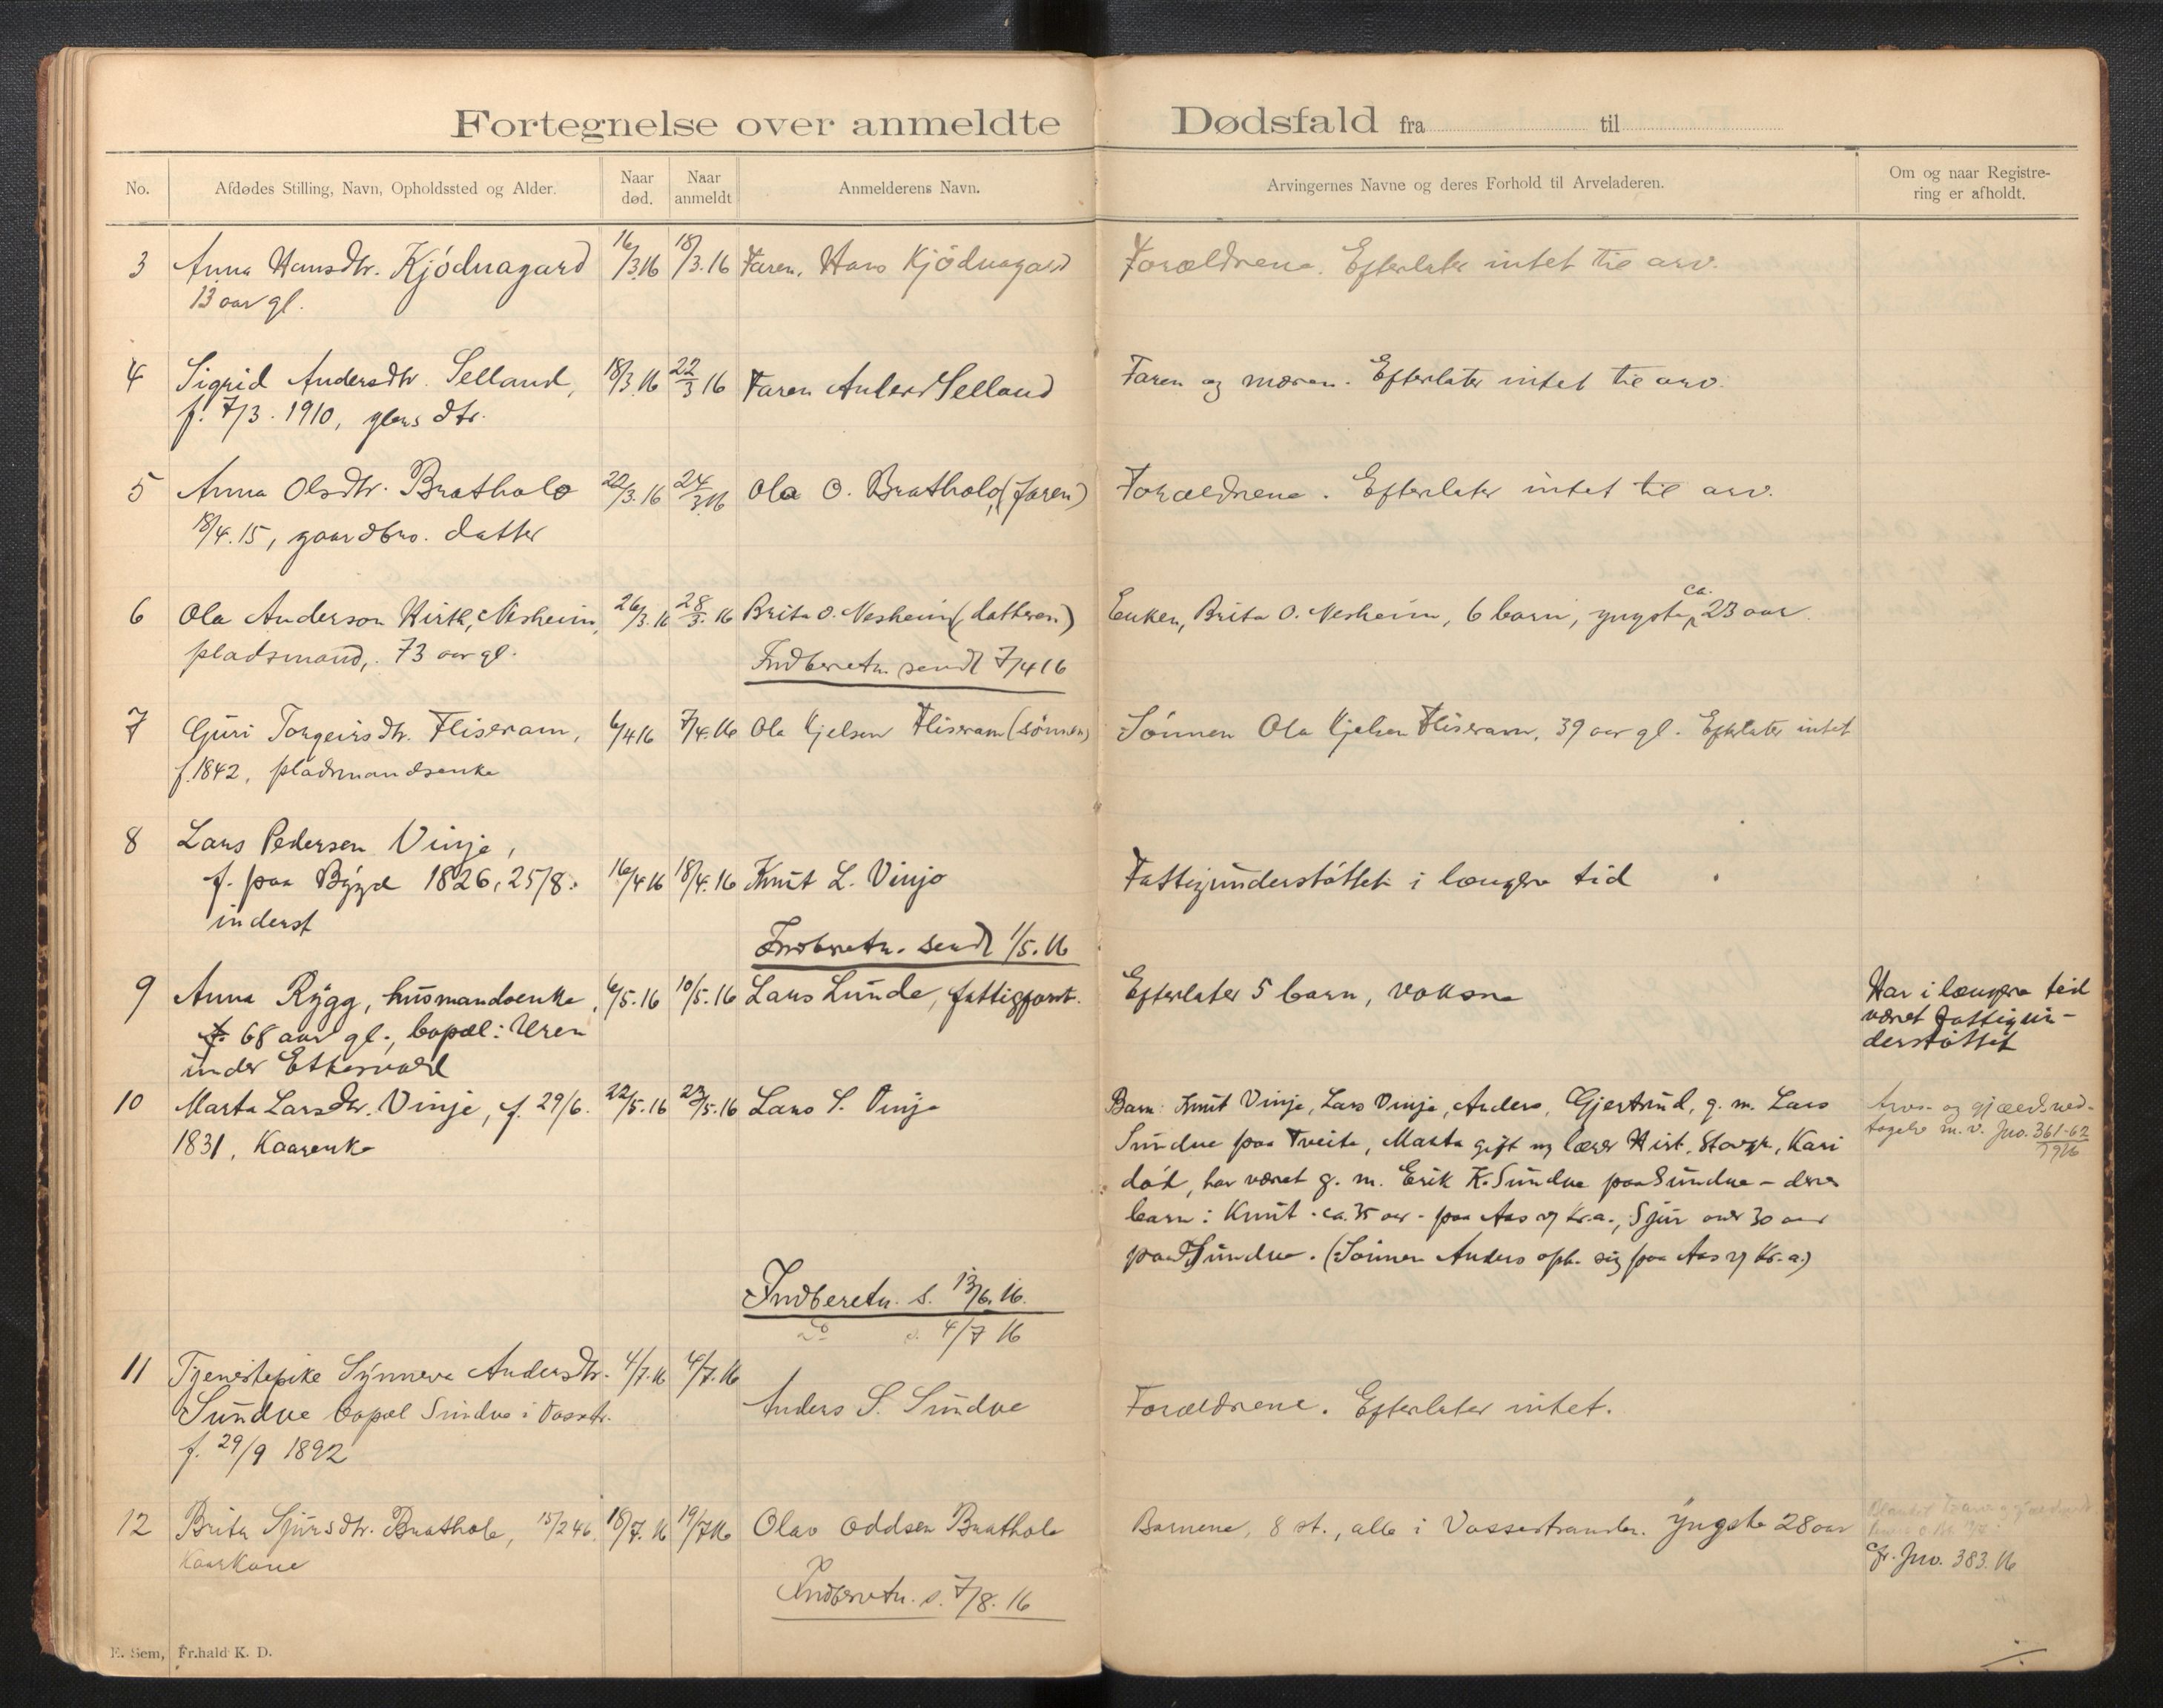 Fortegnelse over anmeldte Dødsfald fra til
No. Afdødes Stilling, Navn, Opholdssted og Alder. Naar død. Naar anmeldt Anmelderens Navn. Arvingernes Navne og deres Forhold til Arveladeren. Om og naar Registrering er afholdt.
3 Anna Hansdtr. Kjödnagard 16/3.16 18/3.16 Faren, Hans Kjödnagard Forældrene. Efterlater intet til arv.
13 aar gl.
4 Sigrid Andersdtr. Selland, 18/3.16 22/3 16 Faren Anders Selland Faren og moren. Efterlater intet til arv.
f. 7/3. 1910, dtr.
5 Anna Olsdtr. Brathole 22/3.16 24/3 16 Ola O. Brathole (faren) Forældrene. Efterlater intet til arv.
18/4.15, gaardbr. datter
6 Ola Anderson Hirth, Nesheim, 26/3.16 28/3.16 Brita O. Nesheim (datteren) Enken, Brita O. Nesheim, 6 barn, yngste ca. 23 aar.
pladsmand, 73 aar gl.
Indberetn. sendt 7/4 16
7 Guri Torgeirsdtr. Fliseram, 6/4 16 7/4.16 Ola Kjelsen Fliseram (sønnen) Sönnen Ola Kjelsen Fliseram, 39 aar gl. Efterlater intet
f. 1842, pladsmandsenke
8 Lars Pedersen Vinje,
f. paa Bygd 1826, 25/8. 16/4 16 18/4.16 Knut L. Vinje Fattigunderstöttet i længre tid
inderst
Indberetn. sendt 1/5.16
9 Anna Rygg, husmandsenke, 6/5.16 10/5.16 Lars Lunde, fattigforst. Efterlater 5 barn, voksne Har i længre tid
68 aar gl., bopæl: Uren været fattigun-
under Ettersvold derstöttet
10 Marta Larsdtr. Vinje, f. 29/6. 22/5.16 23/5.16 Lars S. Vinje Barn: Knut Vinje, Lars Vinje, Anders, Gjertrud, g. m. Lars Arvs- og gjældsved-
1831, Kaarenke Sundve paa Tveite, Marta gift m lærer Hirt, Kari tagelse m. v. Jno. 361-62/1916
död, har været g. m. Erik K. Sundve paa Sundve - deres
barn: Knut - ca. 35 aar - paa Aas v/ Kr.a., Sjur over 30 aar
paa Sundve. (Sönnen Anders oph. sig paa Aas v/ Kr.a.)
Indberetn. s. 13/6.16.
do s. 4/7 16
11 Tjenestepike Synneva Andersdtr. 4/7.16 4/7.16
Sundve bopæl Sundve i Vossestr. Anders S. Sundve Forældrene. Efterlater intet.
f. 29/9 1892
12 Brita Sjursdtr. Brathole, 15/2 46. 18/7.16 19/7 16 Olav Oddsen Brathole Barnene, 8 st., alle i Vossestranden. Yngste 28 aar
Kaarkone cfr. Jno. 383.16
Indberetn. s. 7/8.16
E. Sem, Fr.hald K. D.